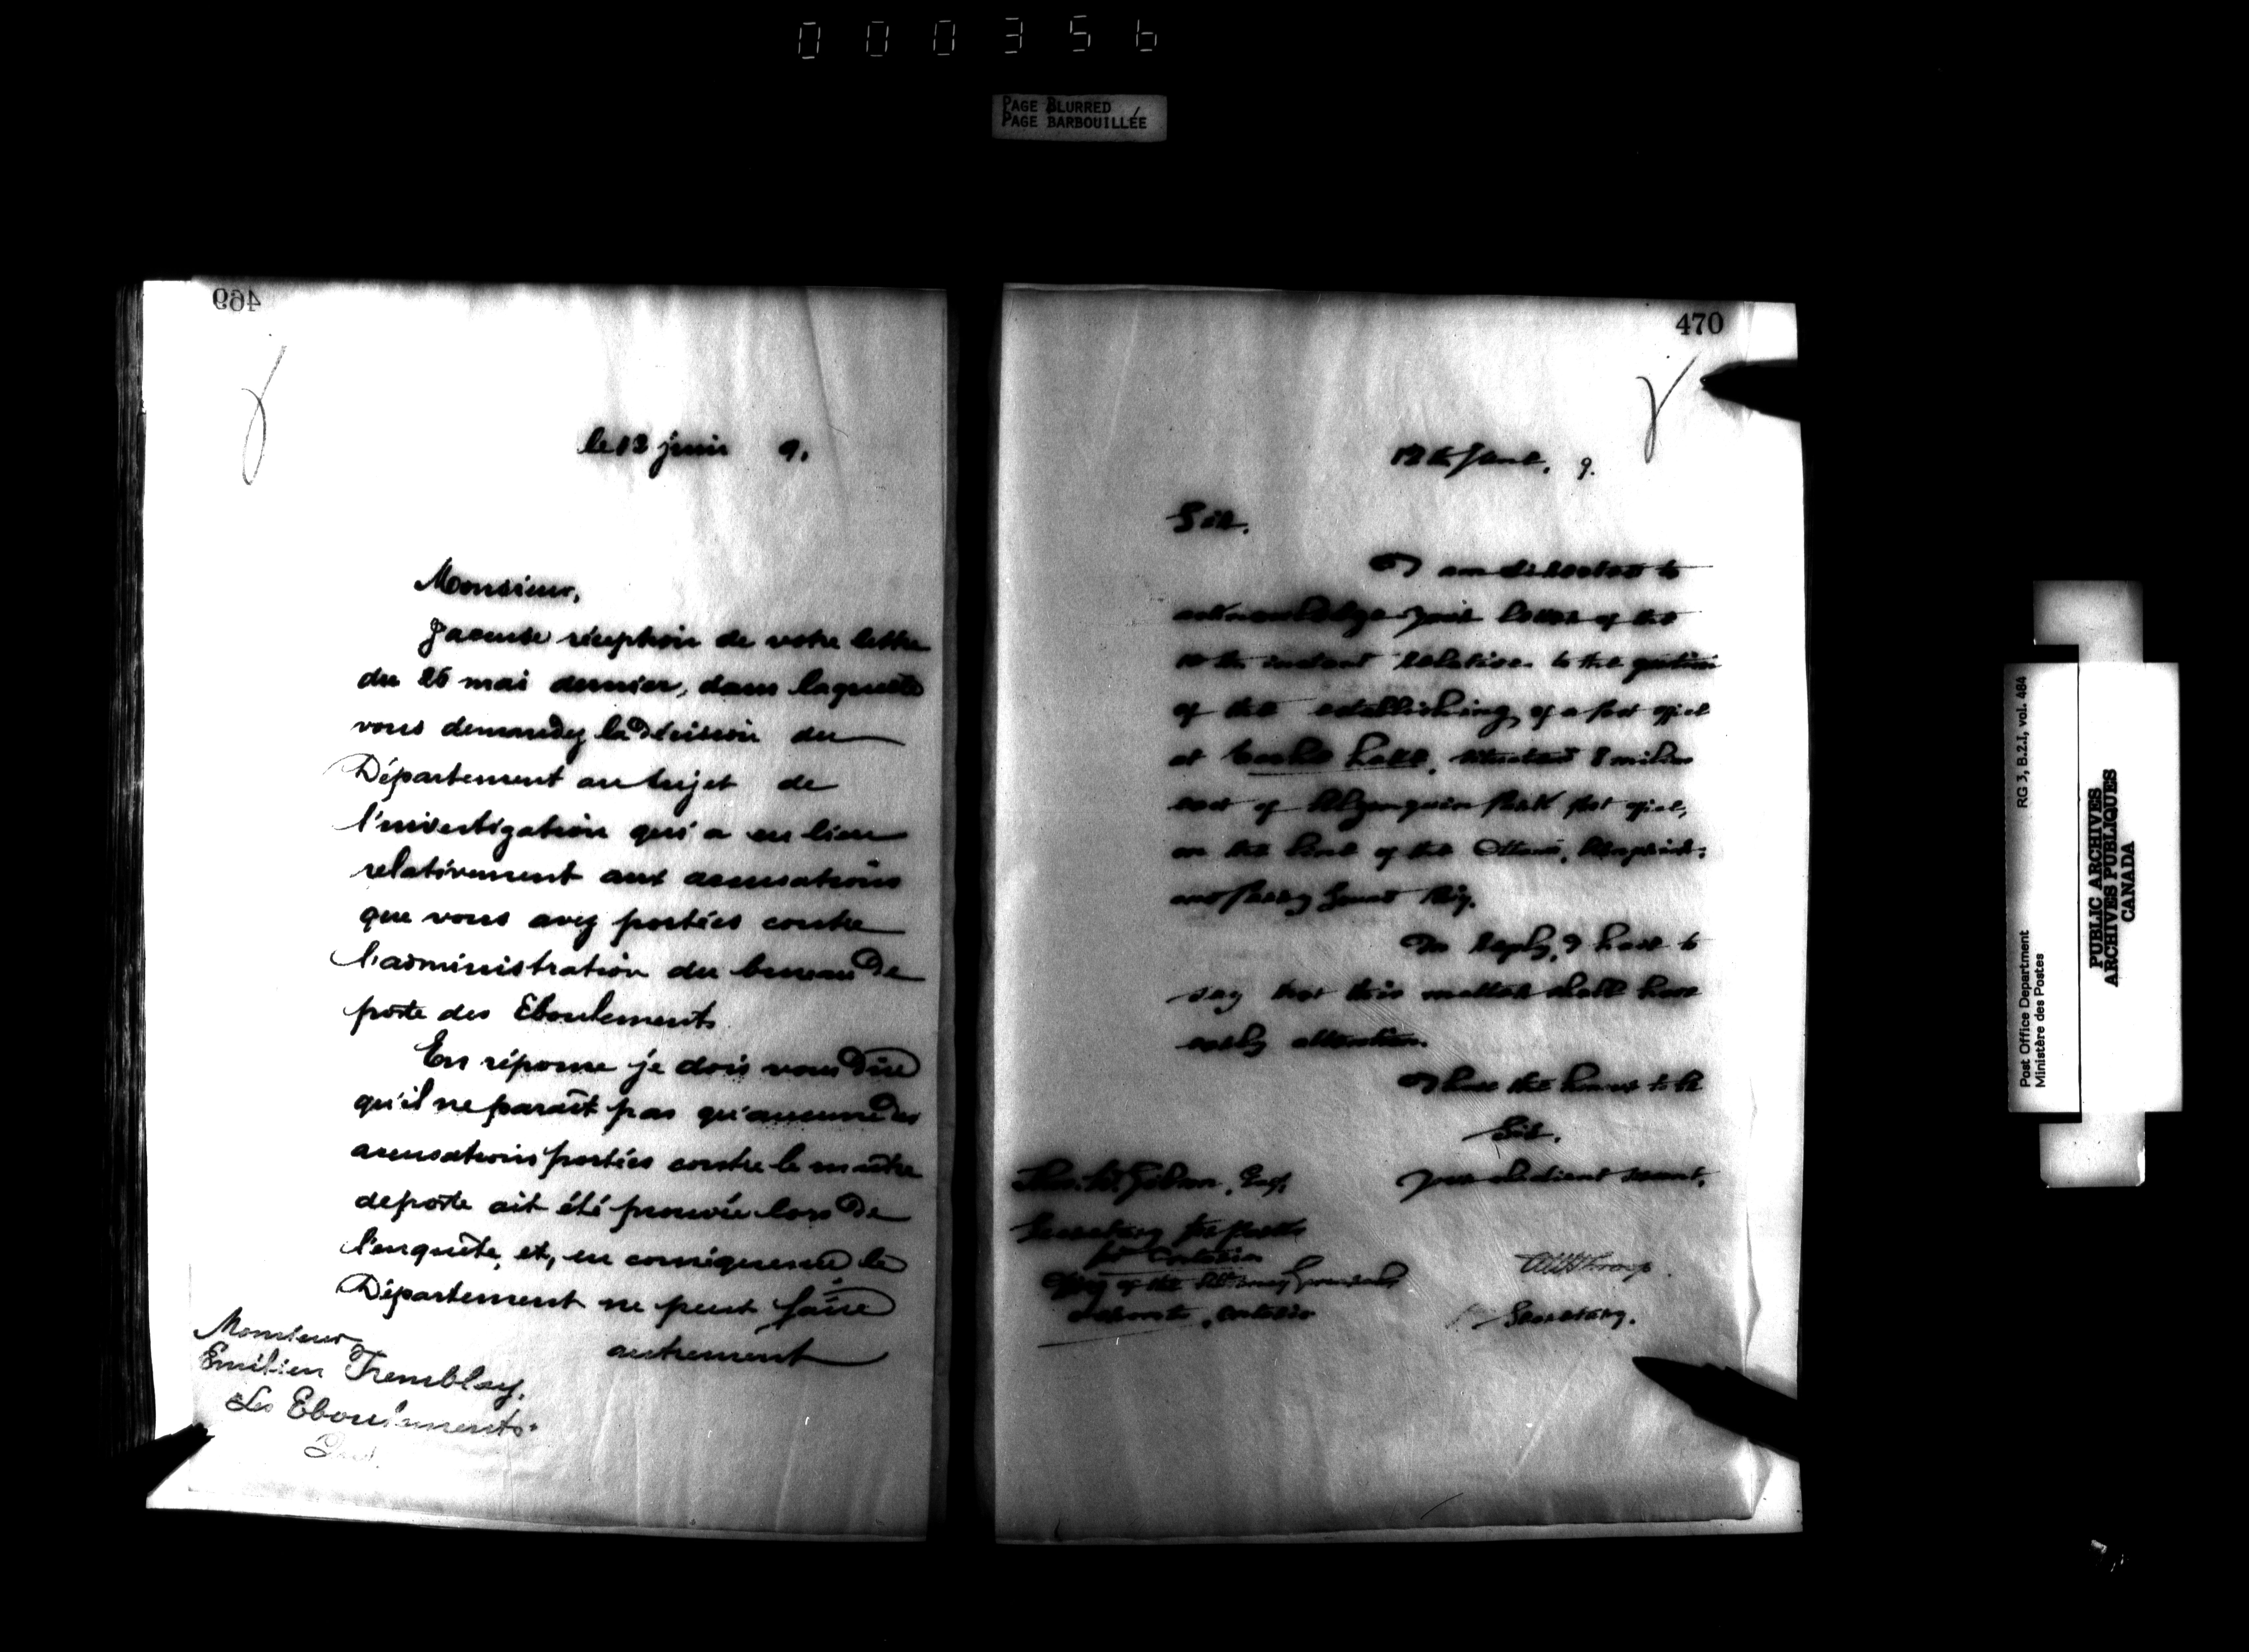 000356
PAGE BLURRED
PAGE BARBOUILLÉE
469
le 12 juin 9.
Monsieur,
J'accuse réception de votre lettre
du 26 mai dernier, dans laquelle
vous demandez la décision du
Département au sujet de
l'investigation qui a eu lieu
relativement aux accusations
que vous avez portées contre
l'administration du bureau de
poste des Eboulements
En réponse je dois vous dire
qu'il ne paraît pas qu'aucune des
accusations portées contre le maître
de poste ait été prouvée lors de
l'enquête, et, en conséquence le
Département ne peut faire
autrement
Monsieur
Emilien Tremblay,
Les Eboulements.
Que.
470
12th June, 9.
Sir,
I am directed to
acknowledge your letter of the
10th instant relative to the question
of the establishing of a post office
at Lake, situated 8 miles
east of Algonquin Park post office,
on the line of the Ottawa, Arnprior
and Parry Sound Ry.
In reply, I have to
say that this matter shall have
early attention.
I have the honour to be
Sir,
Your obedient servant,
Gibson, Esq,
Secretary for
Ontario
of the
Toronto, Ontario
Secretary.
Post Office Department RG 3, B.2.I, vol. 464
Ministère des Postes
PUBLIC ARCHIVES
ARCHIVES PUBLIQUES
CANADA